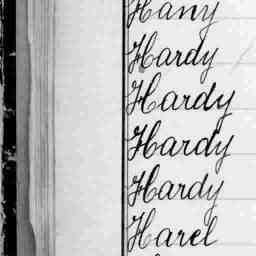 Hany
Hardy
Hardy
Hardy
Hardy
Harel